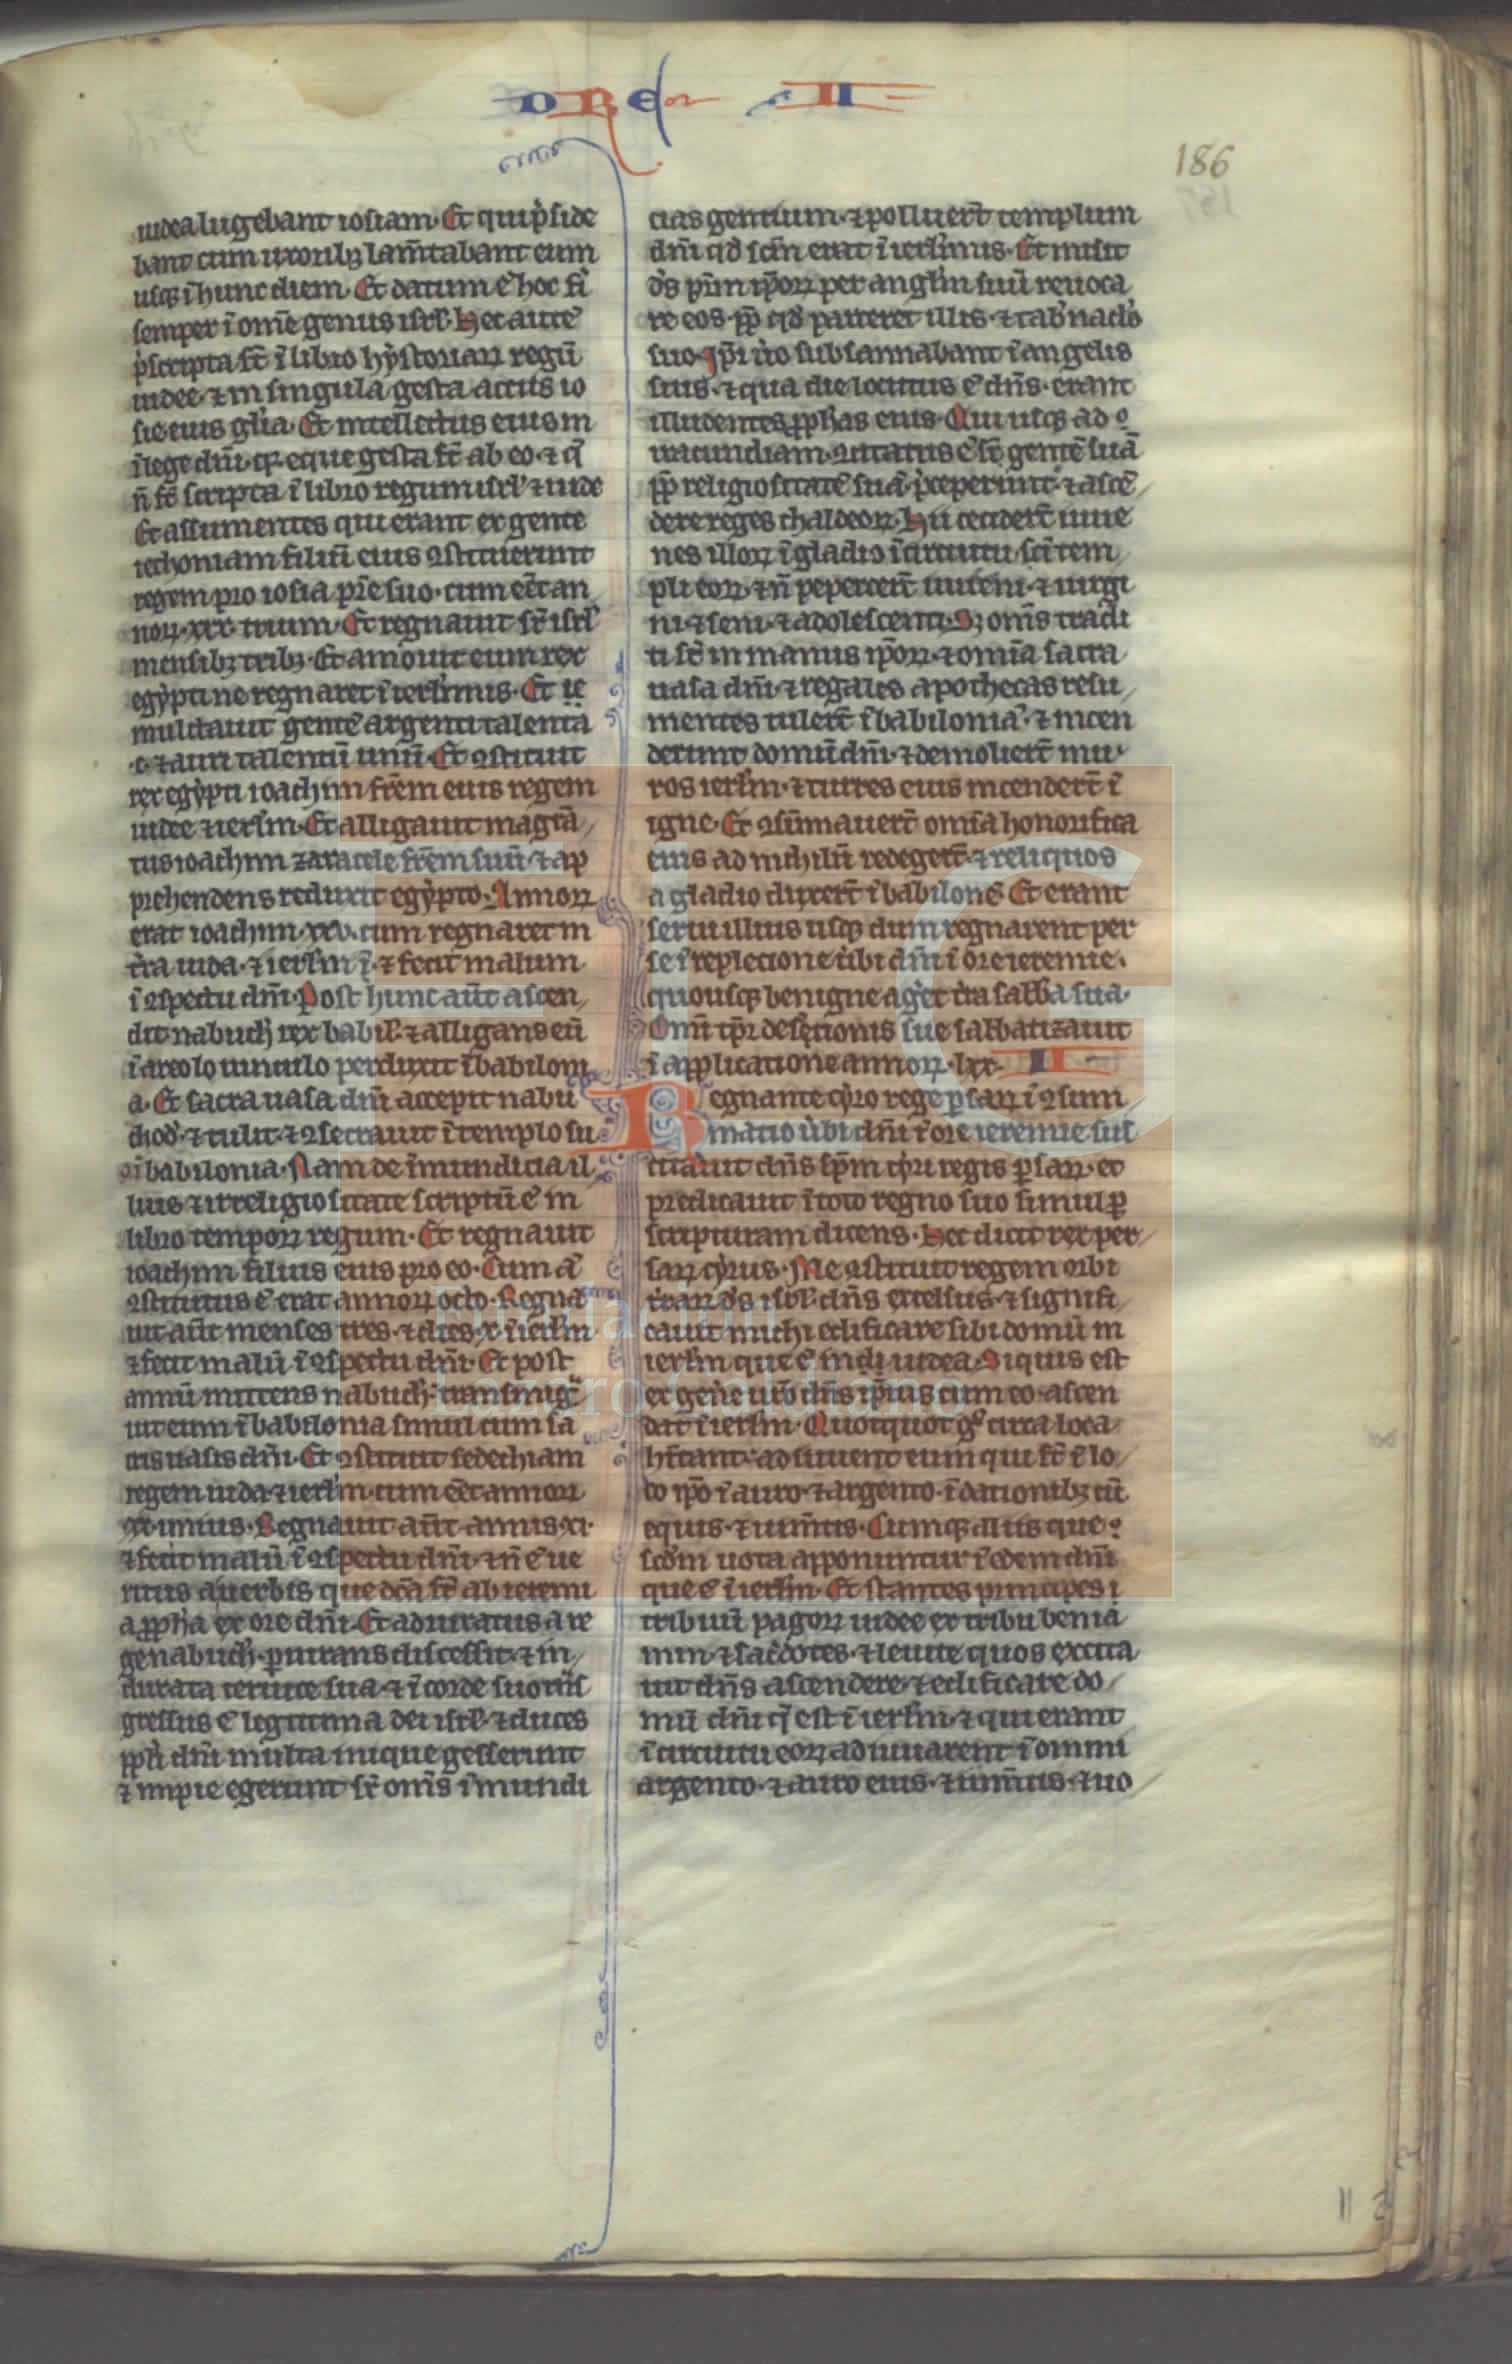 DRE II
186
iudea lugebant iosiam. Et qui p̄side
bant cum uxoribꝫ lam̄tabant eum
usqꝫ ī hunc diem. Et datum ē hoc fi
semper ī om̄e genus isrl̄. Hec autē
p̄scripta st̄ ī libro hẏstoriaꝝ regū
iudee ⁊ in singula gesta actus io
sie eius gl̄ia. Et intellectus eius in
ī lege dn̄i qꝫ eque gesta st̄ ab eo ⁊ q̄
n̄ st̄ scripta ī libro regum isrl̄ ⁊ iude
Et assumentes qui erant ex gente
iechoniam filiū eius ꝯstituerunt
regem pro iosia pr̄e suo. cum eēt an
noꝝ xxx. trium. Et regnauit sr̄ isrl̄
mensibꝫ tribꝫ. Et amouit eum rex
egẏpti ne regnaret ī ierl̄imis. Et
multauit gentē argenti talenta
.c. ⁊ auri talentū unū. Et ꝯstituit
rex egẏpti ioachim fr̄em eius regem
iudee ⁊ ierl̄m. Et alligauit magra̅
tus ioachim zaracele fr̄em suū ⁊ ap
prehendens reduxit egẏpto. Annoꝝ
erat ioachim .xxv. cum regnaret in
tr̄a iuda. ⁊ ierl̄m ⁊ fecit malum
ī ꝯspectu dn̄i. Post hunc aūt ascen
dit nabuch̄ rex babil̄. ⁊ alligans eū
ī areolo uinculo perduxit ī babiloni
a. Et sacra uasa dn̄i accepit nabu
chod̄. ⁊ tulit. ⁊ ꝯsecrauit ī templo su
o ī babilonia. Nam de īmundicia il
lius ⁊ irreligiositate scriptū ē in
libro tempoꝝ regum. Et regnauit
ioachim filius eius pro eo. Cum aū
ꝯstitutus ē erat annoꝝ octo. Regna
uit aūt menses tres. ⁊ dies .x. ī ierl̄m
⁊ fecit malū ī ꝯspectu dn̄i. Et post
annū mittens nabuch̄. transmigr̄
uit eum ī babilonia simul cum sa
cris uasis dn̄i. Et ꝯstituit sedechiam
regem iuda ⁊ ierl̄m. cum eēt annoꝝ
xx. unius. Regnauit aūt annis .xi.
⁊ fecit malū ī ꝯspectu dn̄i. ⁊ n̄ ē ue
ritus a uerbis que dc̄a st̄ ab ieremi
a ꝓph̄a ex ore dn̄i. Et adiuratus a re
ge nabuch̄. ꝑiurans discessit. ⁊ in
durata ceruice sua ⁊ ī corde suo trās
gressus ē legitima dei isrl̄. ⁊ duces
ppl̄i dn̄i multa inique gesserunt
⁊ impie egerunt sr̄ om̄s īmundi
cias gentium. ⁊ polluerūt templum
dn̄i qd̄ sc̄m erat ī ierl̄imis. Et misit
ds̄ pr̄im ip̄oꝝ per angl̄m suū reuoca
re eos. ꝓp̄ qd̄ parceret illis. ⁊ tab̄naclo
suo. Ip̄i uo̅ subsannabant ī angelis
suis. ⁊ qua die locutus ē dn̄s. erant
illudentes ꝓph̄as eius. Qui usqꝫ ad
iracundiam ꝯcitatus ē sr̄ gentē suā
ꝓp̄ religiositatē suā. p̄ceperunt ⁊ ascē
dere reges chaldeoꝝ. Hii occiderūt iuue
nes illoꝝ ī gladio ī circuitu sc̄i tem
pli eoꝝ. ⁊ n̄ pepercerūt iuueni. ⁊ uirgi
ni. ⁊ seni. ⁊ adolescenti. Sꝫ om̄s tradi
ti st̄ in manus ip̄oꝝ. ⁊ om̄ia sacra
uasa dn̄i. ⁊ regales apothecas resu
mentes tulerūt ī babilonia̅. ⁊ incen
derunt domū dn̄i. ⁊ demolierūt mu
ros ierl̄m. ⁊ turres eius incenderūt ī
igne. Et ꝯsūmauerūt om̄ia honorifica
eius ad nichilū redegerūt. ⁊ reliquos
a gladio duxerūt ī babilonē. Et erant
serui illius usqꝫ dum regnarent per
se ī repletione ūbi dn̄i ī ore ieremie.
quousqꝫ benigne ageret tr̄a sabb̄a sua.
Om̄i tp̄r desertionis sue sabbatizauit
ī applicatione annoꝝ .lxx. II
Regnante cẏro rege ꝑsaꝝ ī ꝯsum
matio ūbi dn̄i ī ore ieremie sus
citauit dn̄s sp̄m cẏri regis ꝑsaꝝ. et
predicauit ī toto regno suo simul ꝑ
scripturam dicens. Hec dicit rex per
saꝝ cẏrus. Me ꝯstituit regem orbi
tr̄aꝝ ds̄ isrl̄. dn̄s excelsus. ⁊ signifi
cauit michi edificare sibi domū in
ierl̄m que ē ī iudea. Siquis est
ex gen̄e uro̅ dn̄s ip̄ius cum eo. ascen
dat ī ierl̄m. Quotquot g̊ circa loca
hītant. adiuuent eum qui st̄ ī lo
co ip̄o ī auro ⁊ argento. ī dationibꝫ cū
equis. ⁊ iumentis. Cumqꝫ aliis que
sc̄dm uota apponuntur ī edem dn̄i
que ē ī ierl̄m. Et stantes principes
tribuū pagoꝝ iudee ex tribu benia
min. ⁊ sac̄dotes. ⁊ leuite quos excita
uit dn̄s ascendere. ⁊ edificare do
mū dn̄i q̄ est ī ierl̄m. ⁊ qui erant
ī circuitu eoꝝ adiuuarent ī omni
argento. ⁊ auro eius. ⁊ iumentis. ⁊ uo
FLG
Fundación
Lázaro Galdiano